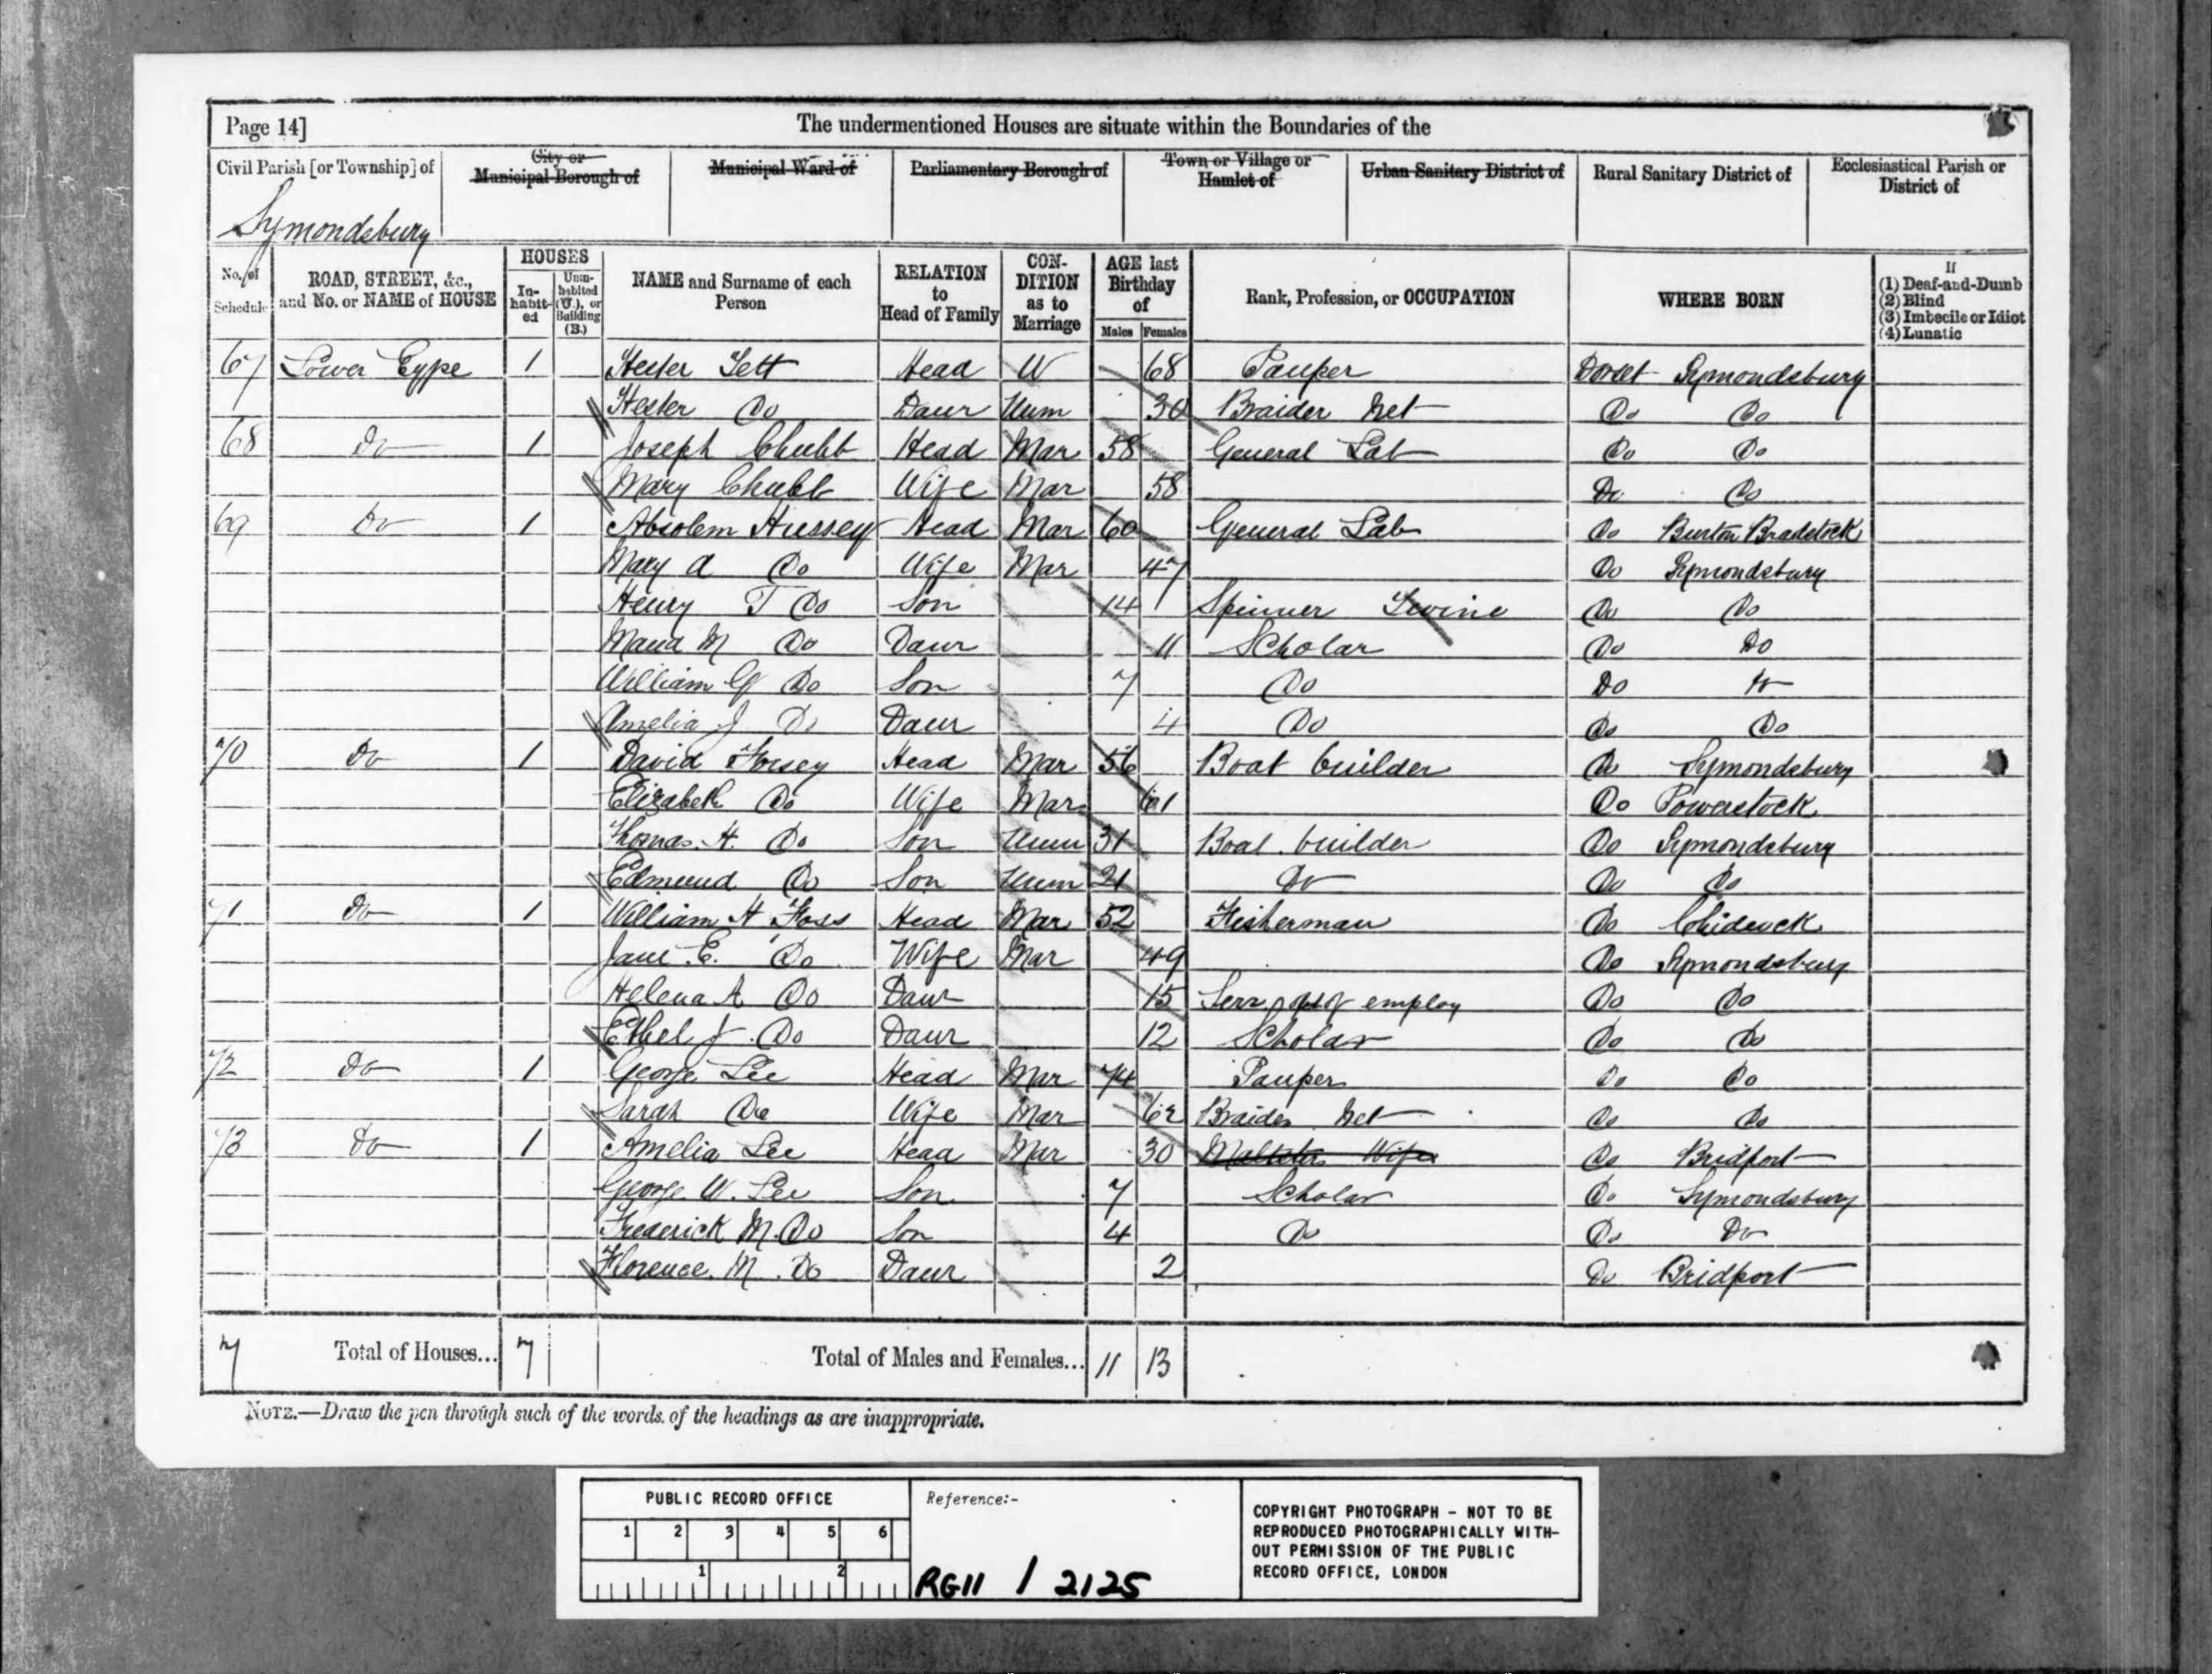 Page 14] The undermentioned Houses are situate within the Boundaries of the
Civil Parish [or Township] of City or Municipal Borough of Municipal Ward of Parliamentary Borough of Town or Village or Hamlet of Urban Sanitary District of Rural Sanitary District of Ecclesiastical Parish or District of
Symondsbury
No. of Schedule ROAD, STREET, &c., and No. or NAME of HOUSE HOUSES In-habit-ed Unin-habited (U.), or Building (B.) NAME and Surname of each Person RELATION to Head of Family CON-DITION as to Marriage AGE last Birthday of Males Females Rank, Profession, or OCCUPATION WHERE BORN If (1) Deaf-and-Dumb (2) Blind (3) Imbecile or Idiot (4) Lunatic
67 Lower Eype 1 Hester Tett Head W 68 Pauper Dorset Symondsbury
Hester Do Daur Unm 30 Braider Net Do Do
68 Do 1 Joseph Chubb Head Mar 58 General Lab Do Do
Mary Chubb Wife Mar 58 Do Do
69 Do 1 Absolem Hussey Head Mar 60 General Lab Do Burton Bradstock
Mary A Do Wife Mar 47 Do Symondsbury
Henry T Do Son 14 Spinner Twine Do Do
Maud M Do Daur 11 Scholar Do Do
William G Do Son 7 Do Do Do
Amelia J Do Daur 4 Do Do Do
70 Do 1 David Forsey Head Mar 56 Boat builder Do Symondsbury
Elizabeth Do Wife Mar 61 Do Powerstock
Thomas H. Do Son Unm 31 Boat builder Do Symondsbury
Edmund Do Son Unm 21 Do Do Do
71 Do 1 William H Foss Head Mar 52 Fisherman Do Chideock
Jane E. Do Wife Mar 49 Do Symondsbury
Helena A Do Daur 15 Serv out of employ Do Do
Ethel J Do Daur 12 Scholar Do Do
72 Do 1 George Lee Head Mar 74 Pauper Do Do
Sarah Do Wife Mar 62 Braider Net Do Do
73 Do 1 Amelia Lee Head Mar 30 Wife Do Bridport
George W. Lee Son 7 Scholar Do Symondsbury
Frederick M. Do Son 4 Do Do Do
Florence. M. Do Daur 2 Do Bridport
7 Total of Houses... 7 Total of Males and Females... 11 13
NOTE.—Draw the pen through such of the words of the headings as are inappropriate.
PUBLIC RECORD OFFICE
1 2 3 4 5 6
1 2
Reference:-
RG11 / 2125
COPYRIGHT PHOTOGRAPH – NOT TO BE
REPRODUCED PHOTOGRAPHICALLY WITH-
OUT PERMISSION OF THE PUBLIC
RECORD OFFICE, LONDON